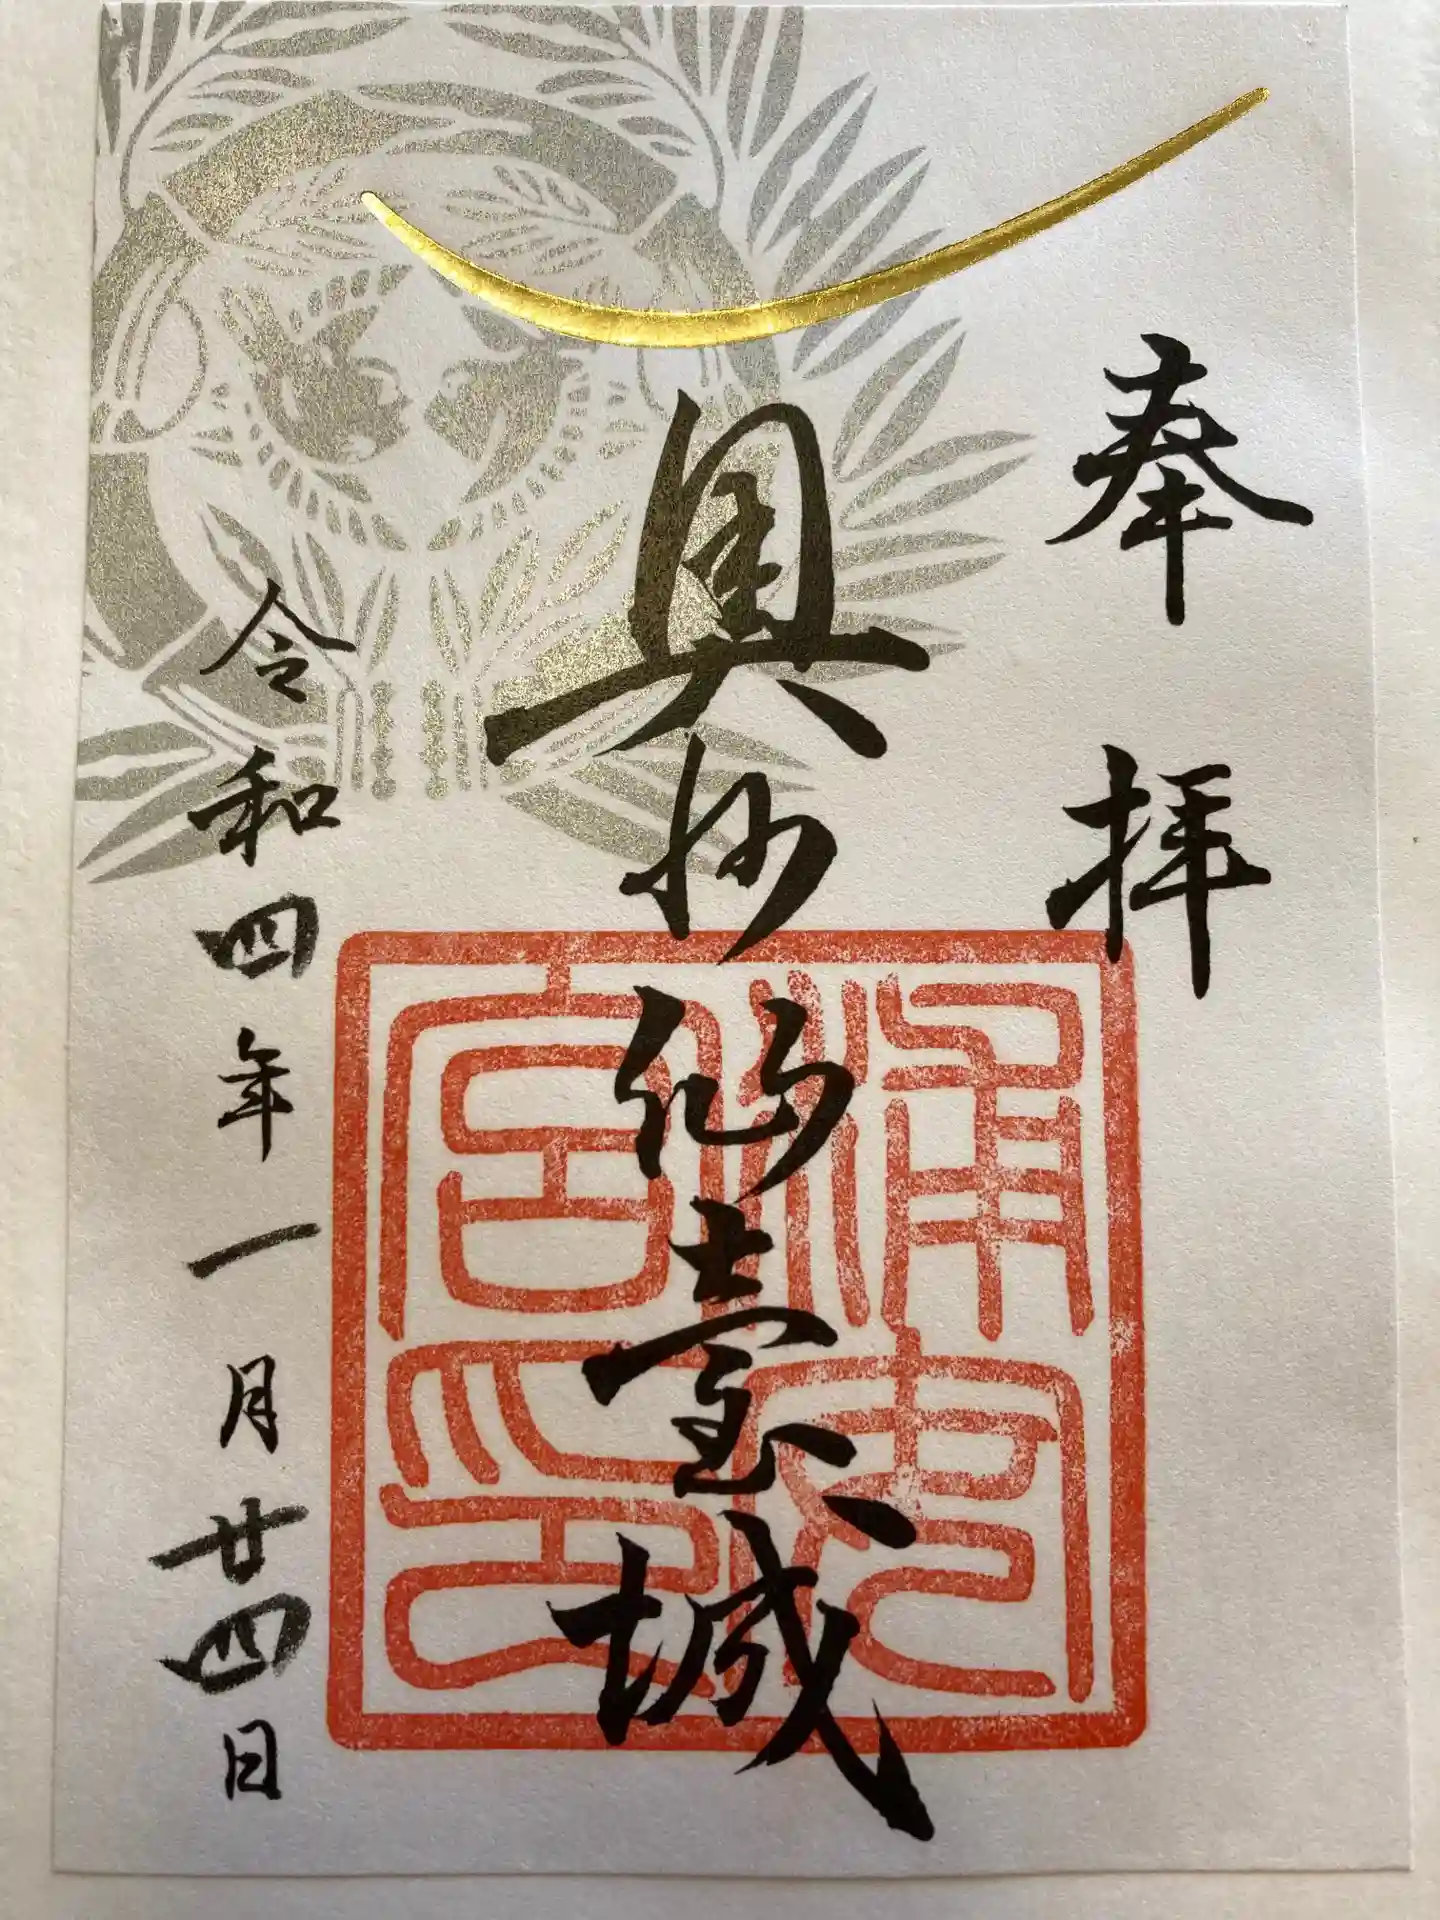 奉拝
奥州仙臺城
浦安宮印
令和四年一月廿四日